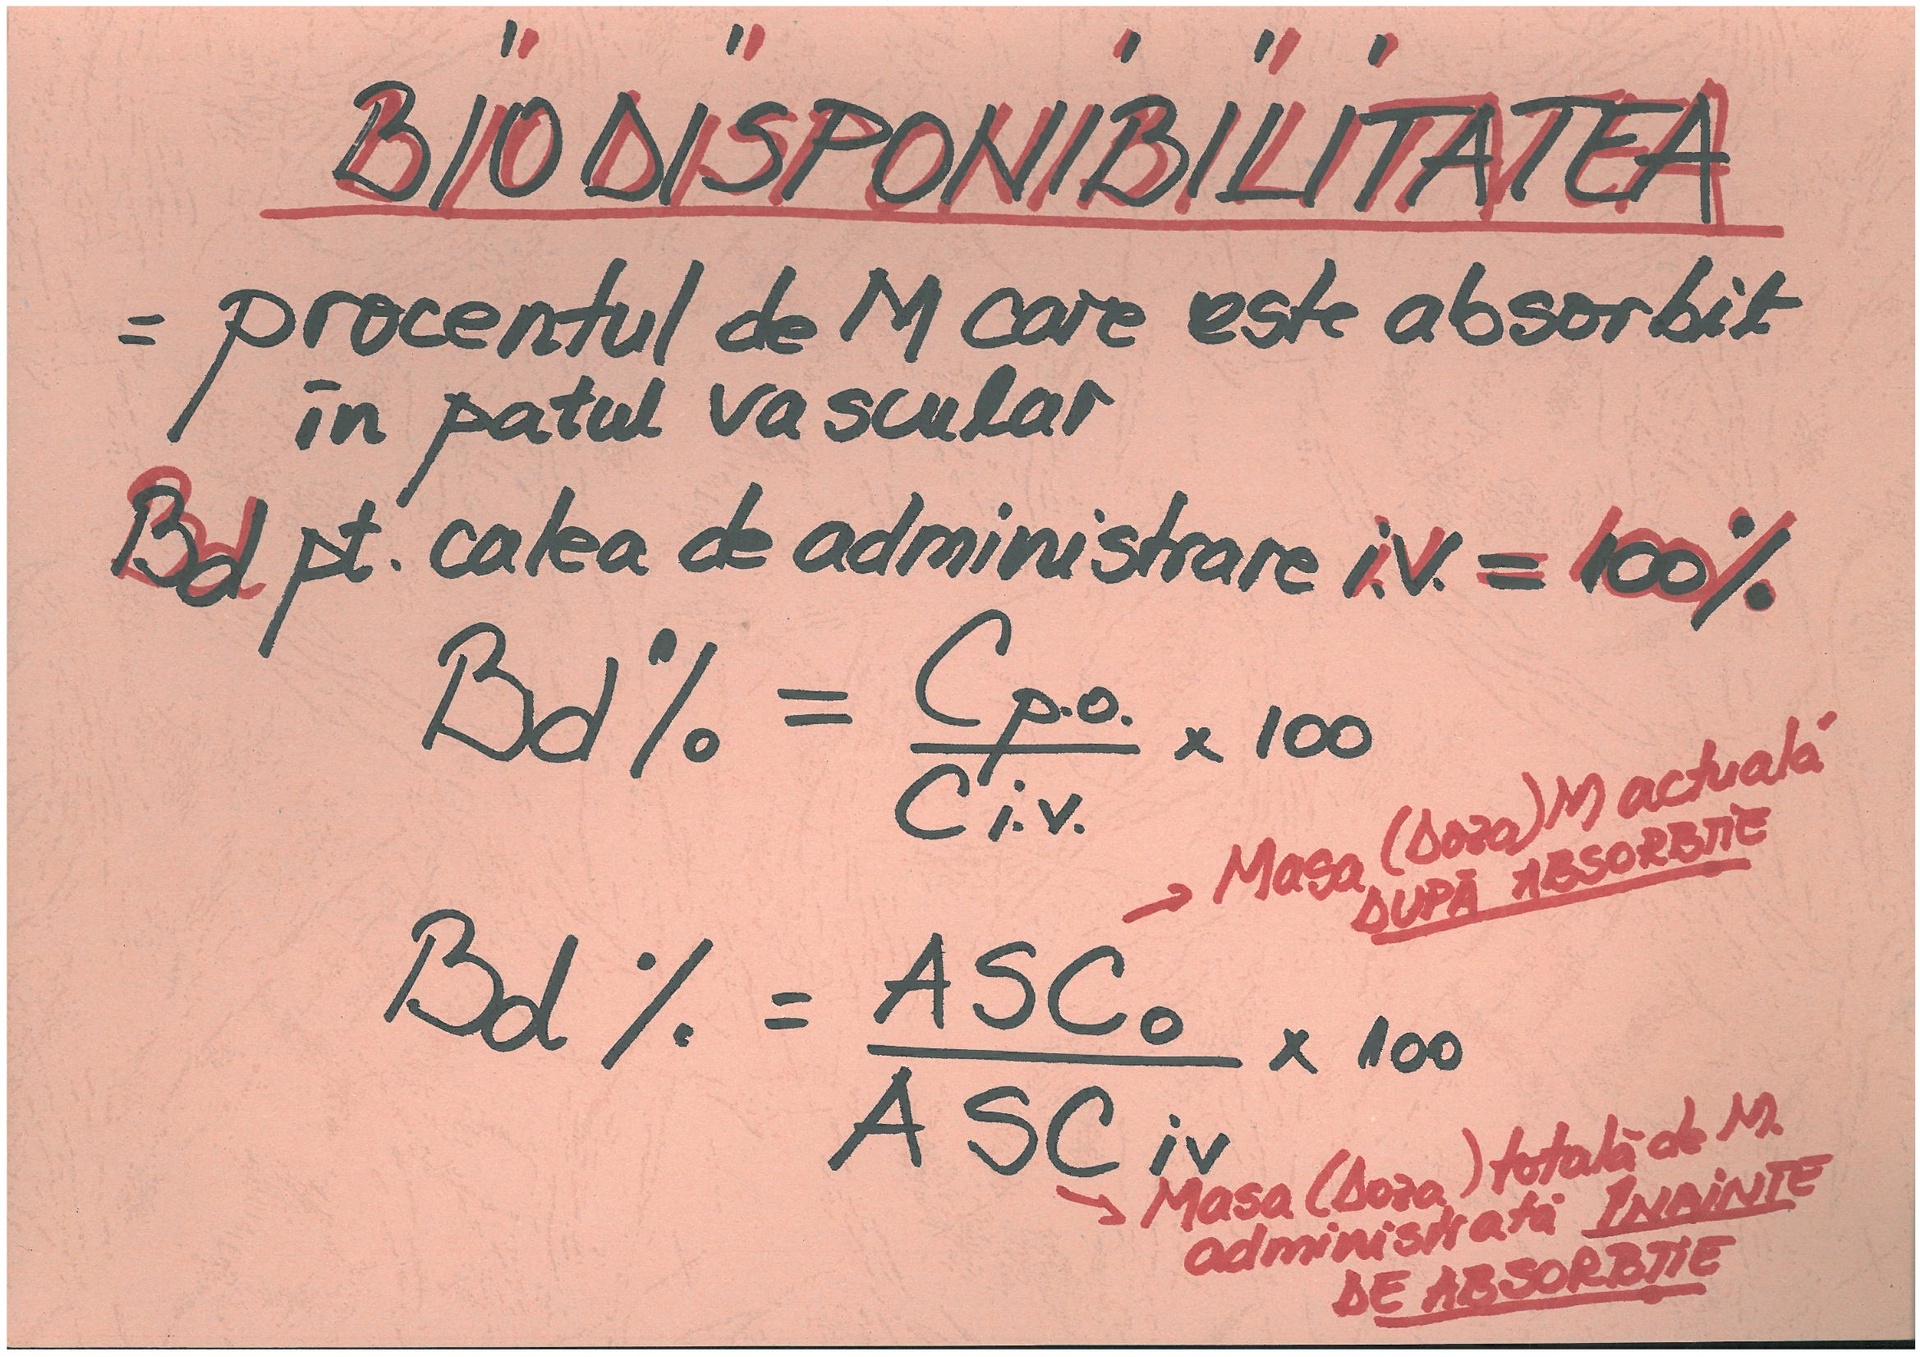 BIODISPONIBILITATEA
= procentul de M care este absorbit
în patul vascular
Bd pt. calea de administrare i.v. = 100%
Bd% = Cp.o. / Ci.v. x 100
→ Masa (Doza) M actuală
DUPĂ ABSORBTIE
Bd% = ASCo / ASC iv x 100
→ Masa (Doza) totală de M.
administrată ÎNAINTE
DE ABSORBTIE